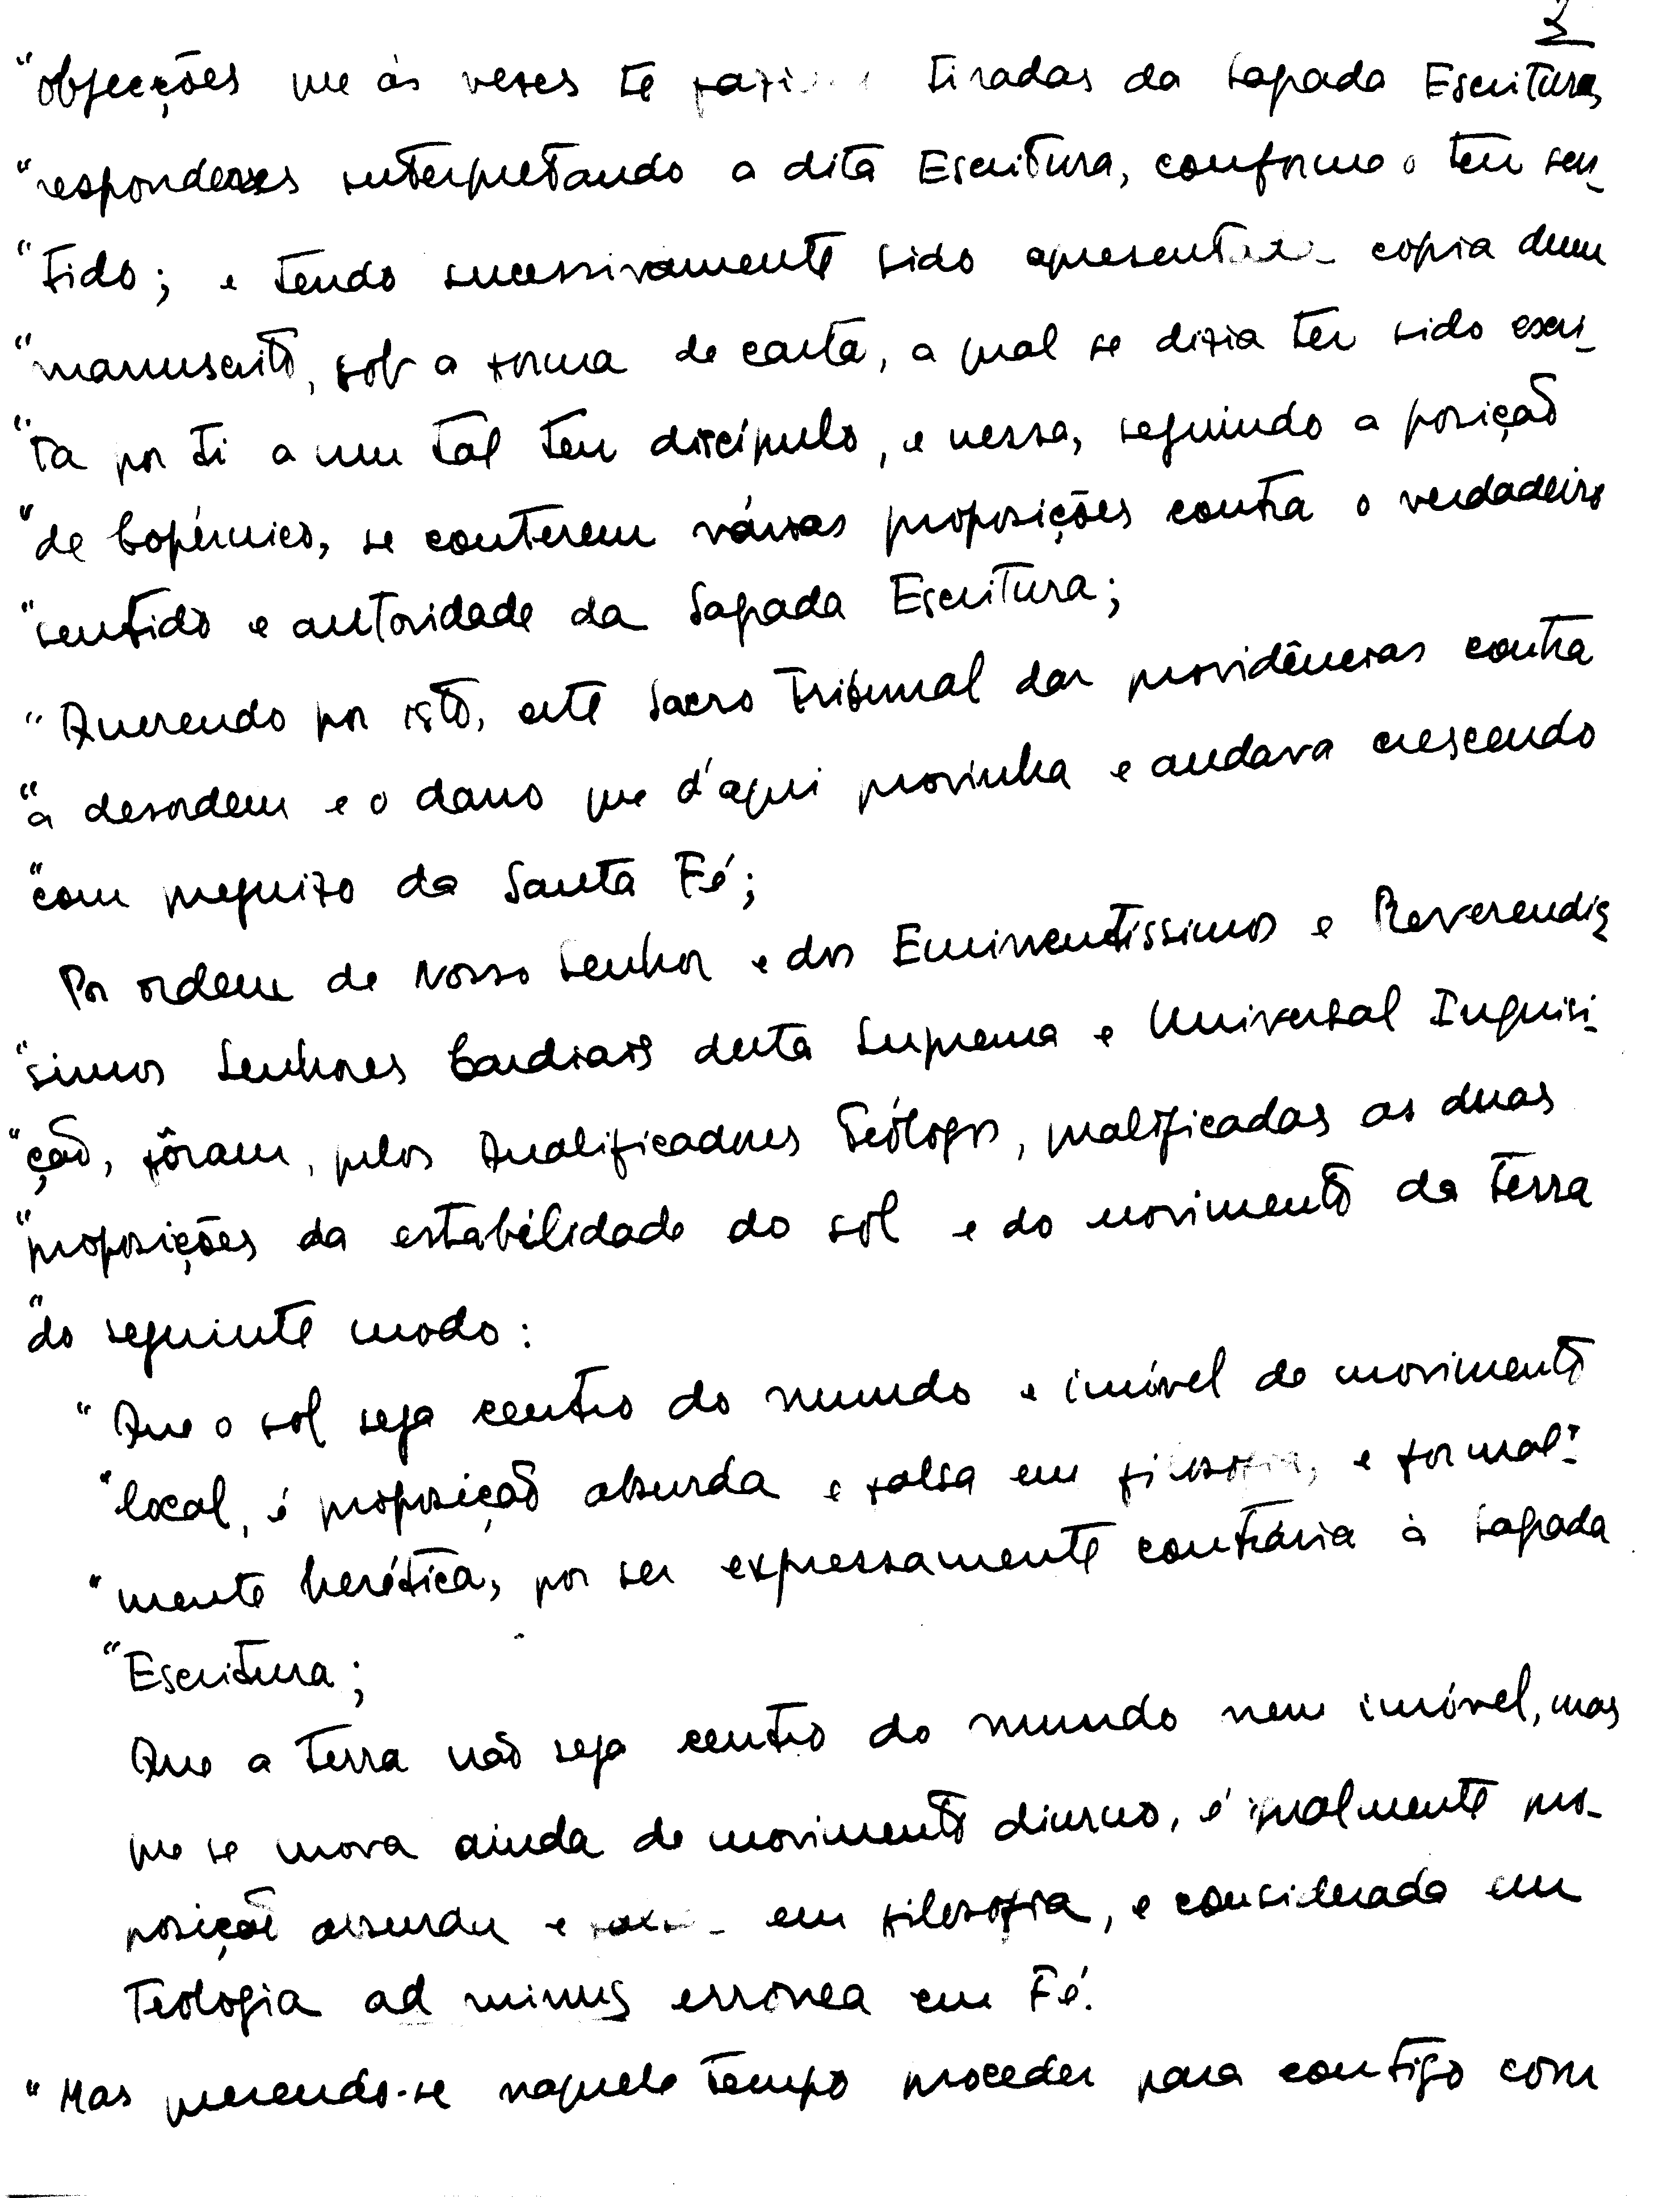 2
"objecções que às vezes te faziam tiradas da Sagrada Escritura,
"respondesses interpretando a dita Escritura, conforme o teu sen-
"tido; e tendo sucessivamente sido apresentada copia dum
"manuscrito, sob a forma de carta, a qual se dizia ter sido escri-
"ta por ti a um tal teu discípulo, e nessa, seguindo a posição
"de Copérnico, se conterem várias proposições contra o verdadeiro
"sentido e autoridade da Sagrada Escritura;
"Querendo por isto, este Sacro Tribunal dar providências contra
"a desordem e o dano que d'aqui provinha e andava crescendo
"com prejuizo da Santa Fé;
Por ordem de Nosso Senhor e dos Eminentissimos e Reverendis
"simos Senhores Cardiais desta Suprema e Universal Inquisi-
"ção, fôram, pelos Qualificadores Teólogos, qualificadas as duas
"proposições da estabilidade do sol e do movimento da Terra
"do seguinte modo:
"Que o sol seja centro do mundo e imóvel de movimento
"local, é proposição absurda e falsa em filosofia, e formal-
"mente herética, por ser expressamente contrária à Sagrada
"Escritura;
Que a Terra não seja centro do mundo nem imóvel, mas
que se mova ainda de movimento diurno, é igualmente pro-
posição absurda e falsa em filosofia, e considerada em
Teologia ad minus erronea em Fé.
"Mas querendo-se naquele tempo proceder para contigo com